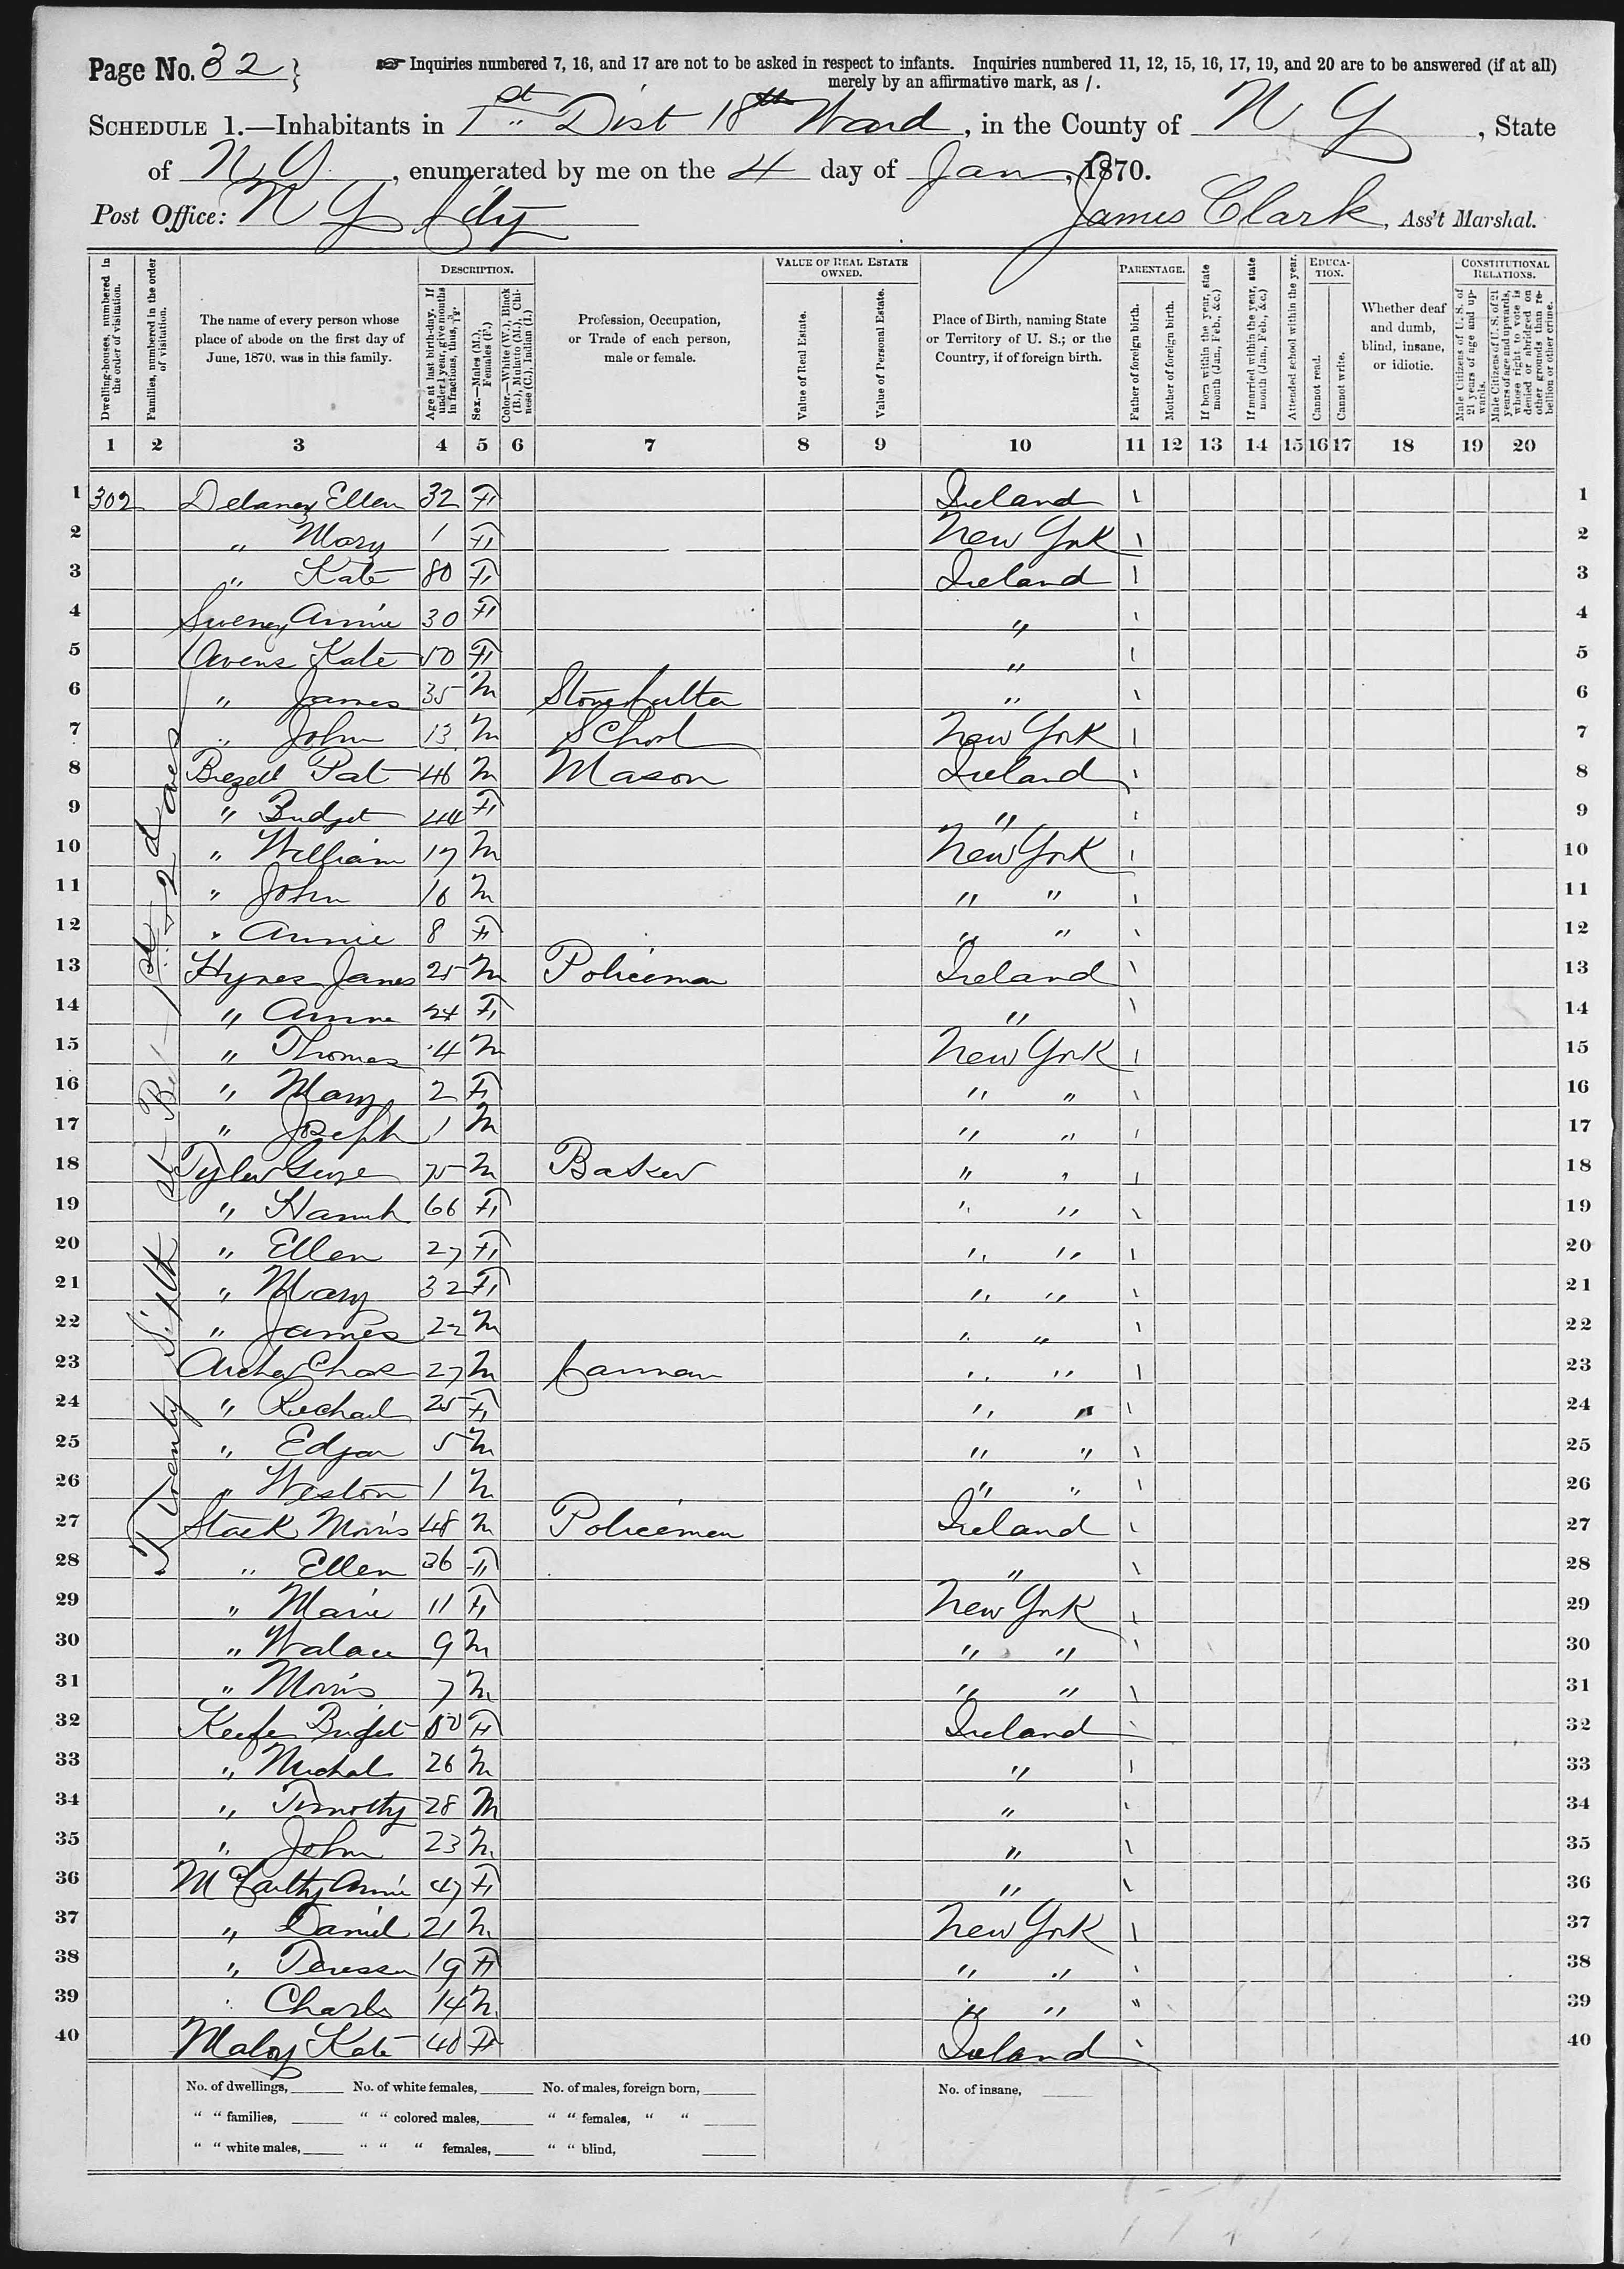 Page No. 32 }
☞ Inquiries numbered 7, 16, and 17 are not to be asked in respect to infants. Inquiries numbered 11, 12, 15, 16, 17, 19, and 20 are to be answered (if at all)
merely by an affirmative mark, as /.
SCHEDULE 1.—Inhabitants in 1st Dist 18th Ward, in the County of N Y, State
of N Y, enumerated by me on the 4 day of Jan, 1870.
Post Office: N Y City James Clark, Ass't Marshal.
Dwelling-houses, numbered in the order of visitation.
Families, numbered in the order of visitation.
The name of every person whose place of abode on the first day of June, 1870. was in this family.
DESCRIPTION.
Age at last birth-day. If under 1 year, give months in fractions, thus, 3/12.
Sex.—Males (M.), Females (F.)
Color.—White (W.), Black (B.), Mulatto (M.), Chinese (C.), Indian (I.)
Profession, Occupation, or Trade of each person, male or female.
VALUE OF REAL ESTATE OWNED.
Value of Real Estate.
Value of Personal Estate.
Place of Birth, naming State or Territory of U. S.; or the Country, if of foreign birth.
PARENTAGE.
Father of foreign birth.
Mother of foreign birth.
If born within the year, state month (Jan., Feb., &c.)
If married within the year, state month (Jan., Feb., &c.)
Attended school within the year.
EDUCATION.
Cannot read.
Cannot write.
Whether deaf and dumb, blind, insane, or idiotic.
CONSTITUTIONAL RELATIONS.
Male Citizens of U. S. of 21 years of age and upwards.
Male Citizens of U. S. of 21 years of age and upwards, whose right to vote is denied or abridged on other grounds than rebellion or other crime.
1 2 3 4 5 6 7 8 9 10 11 12 13 14 15 16 17 18 19 20
Twenty Sixth st Be 1st 2d aves
1 302 Delaney Ellen 32 F Ireland \ 1
2 " Mary 1 F New York \ 2
3 " Kate 80 F Ireland \ 3
4 Sweney Annie 30 F " \ 4
5 Owens Kate 50 F " \ 5
6 " James 35 M Stone Cutter " \ 6
7 " John 13 M School New York \ 7
8 Pat 46 M Mason Ireland \ 8
9 " Bridget 44 F " \ 9
10 " William 17 M New York \ 10
11 " John 16 M " " \ 11
12 " Annie 8 F " " \ 12
13 Hynes James 25 M Policeman Ireland \ 13
14 " Annie 24 F " \ 14
15 " Thomas 4 M New York \ 15
16 " Mary 2 F " " \ 16
17 " Joseph 1 M " " \ 17
18 Tyler 75 M Baker " " \ 18
19 " Hannh 66 F " " \ 19
20 " Ellen 27 F " " \ 20
21 " Mary 32 F " " \ 21
22 " James 22 M " " \ 22
23 Archer Chas 27 M Carman " " \ 23
24 " Rechael 25 F " " \ 24
25 " Edgar 5 M " " \ 25
26 " Weston 1 M " " \ 26
27 Stack Morris 48 M Policeman Ireland \ 27
28 " Ellen 36 F " \ 28
29 " Marie 11 F New York \ 29
30 " Walace 9 M " " \ 30
31 " Morris 7 M " " \ 31
32 Keefe Bridget F Ireland \ 32
33 " Michal 26 M " \ 33
34 " Timothy 28 M " \ 34
35 " John 23 M " \ 35
36 McCarthy Annie 47 F " \ 36
37 " Daniel 21 M New York \ 37
38 " Teressa 19 F " " \ 38
39 " Charls 14 M " " " 39
40 Maloy Kate 40 F Ireland \ 40
No. of dwellings, No. of white females, No. of males, foreign born, No. of insane,
" " families, " " colored males, " " females, " "
" " white males, " " " females, " " blind,